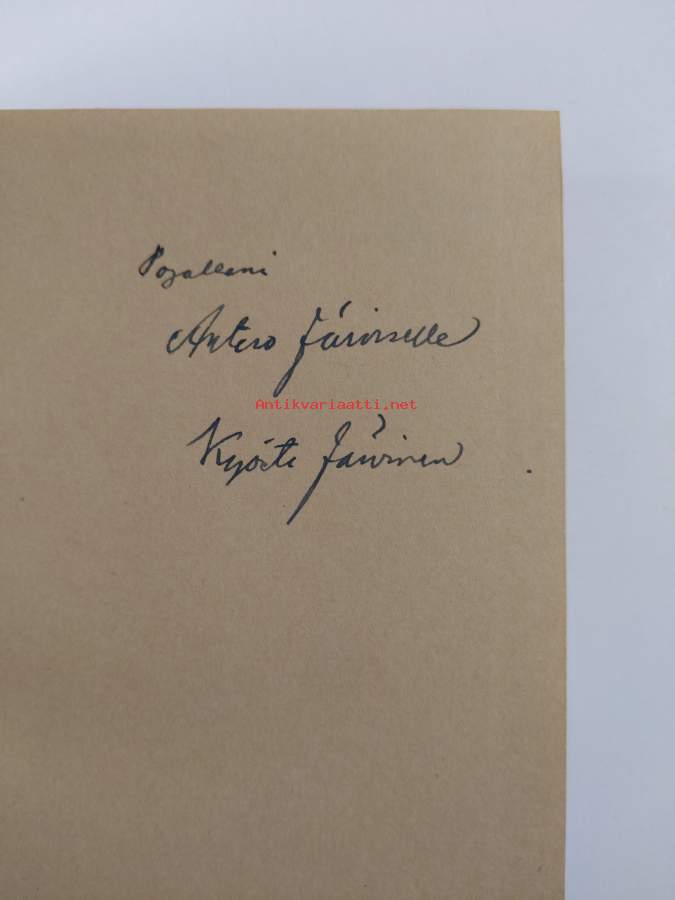 Pojalleni
Antero Järviselle
Antikvariaatti.net
Kyösti Järvinen